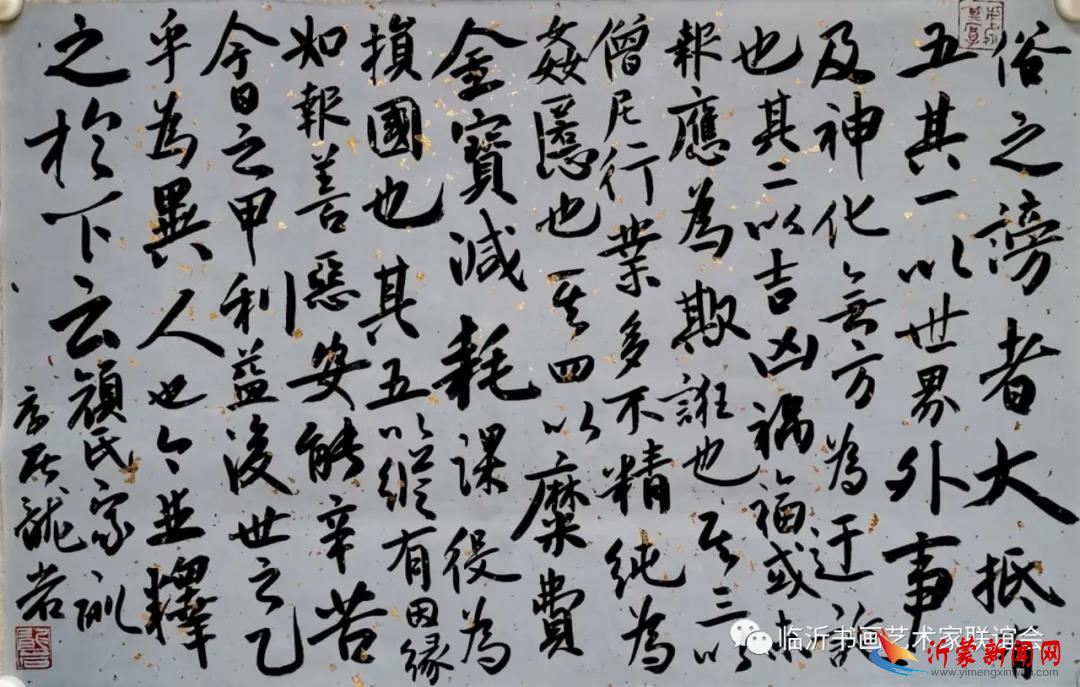 俗之謗者大抵有
五其一以世界外事
及神化無方為迂誕
也其二以吉凶禍福或未
報應為欺誑也其三以
僧尼行業多不精純為
姦慝也其四以糜費
金寶減耗課役為
損國也其五以縱有因緣
如報善惡安能辛苦
今日之甲利益後世之乙
乎為異人也今並釋
之於下云顏氏家訓
临沂书画艺术家联谊会
沂蒙新闻网
www.yimengxinwen.com